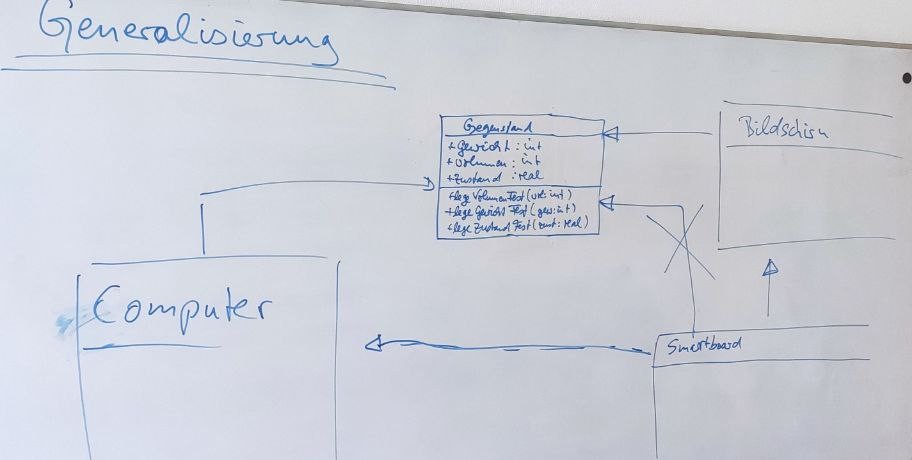 Generalisierung
Gegenstand
+ gewicht : int
+ volumen : int
+ zustand : real
+ lege Volumen Fest (vol: int)
+ lege Gewicht Fest (gew: int)
+ lege Zustand Fest (zust: real)
Bildschirm
Computer
Smartboard